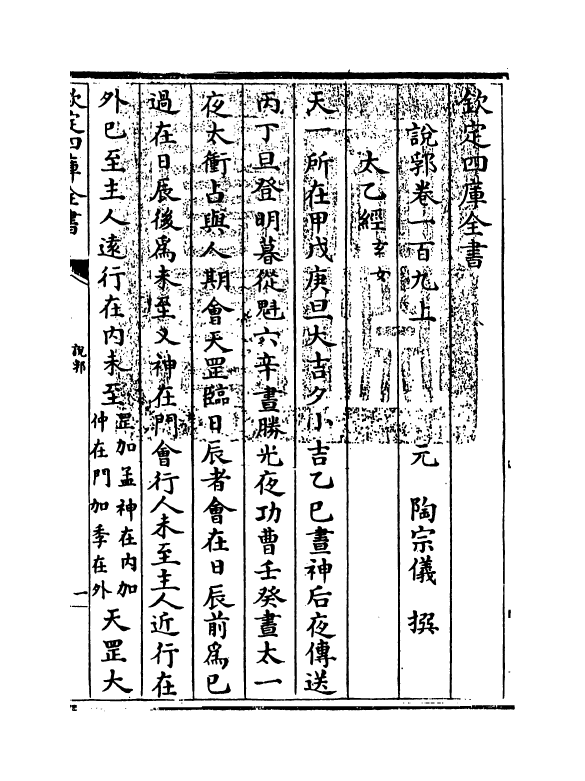 欽定四庫全書
說郛卷一百九上　元　陶宗儀　撰
太乙經玄女
天一所在甲戊庚旦大吉夕小吉乙巳晝神后夜傳送
丙丁旦登明暮從魁六辛晝勝光夜功曹壬癸晝太一
夜太衝占與人期會天罡臨日辰者會在日辰前為已
過在日辰後為未至又神在門會行人未至主人近行在
外已至主人遠行在内未至罡加孟神在内加仲在門加季在外天罡大
欽定四庫全書
說郛
一